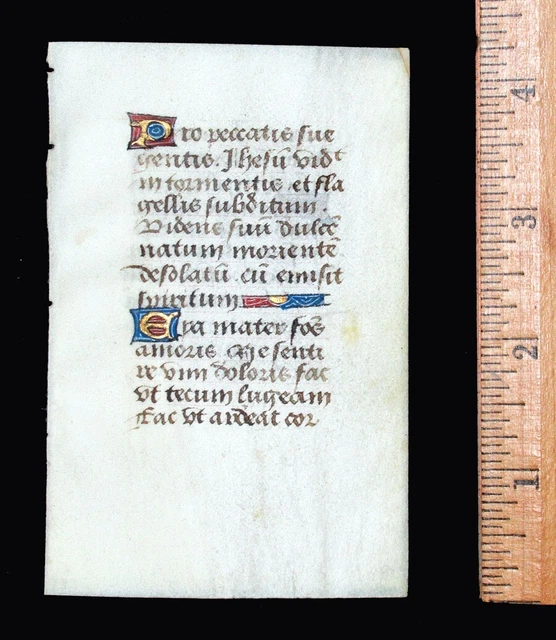 Pro peccatis sue
gentis. Jhesū vidᵗ
in tormentis et fla
gellis subditum.
Videns suū dulcē
natum morientē
desolatū cū emisit
spiritum
Eya mater fōs
amoris Me senti
re vim doloris fac
vt tecum lugeam
Fac vt ardeat cor
4
3
2
1